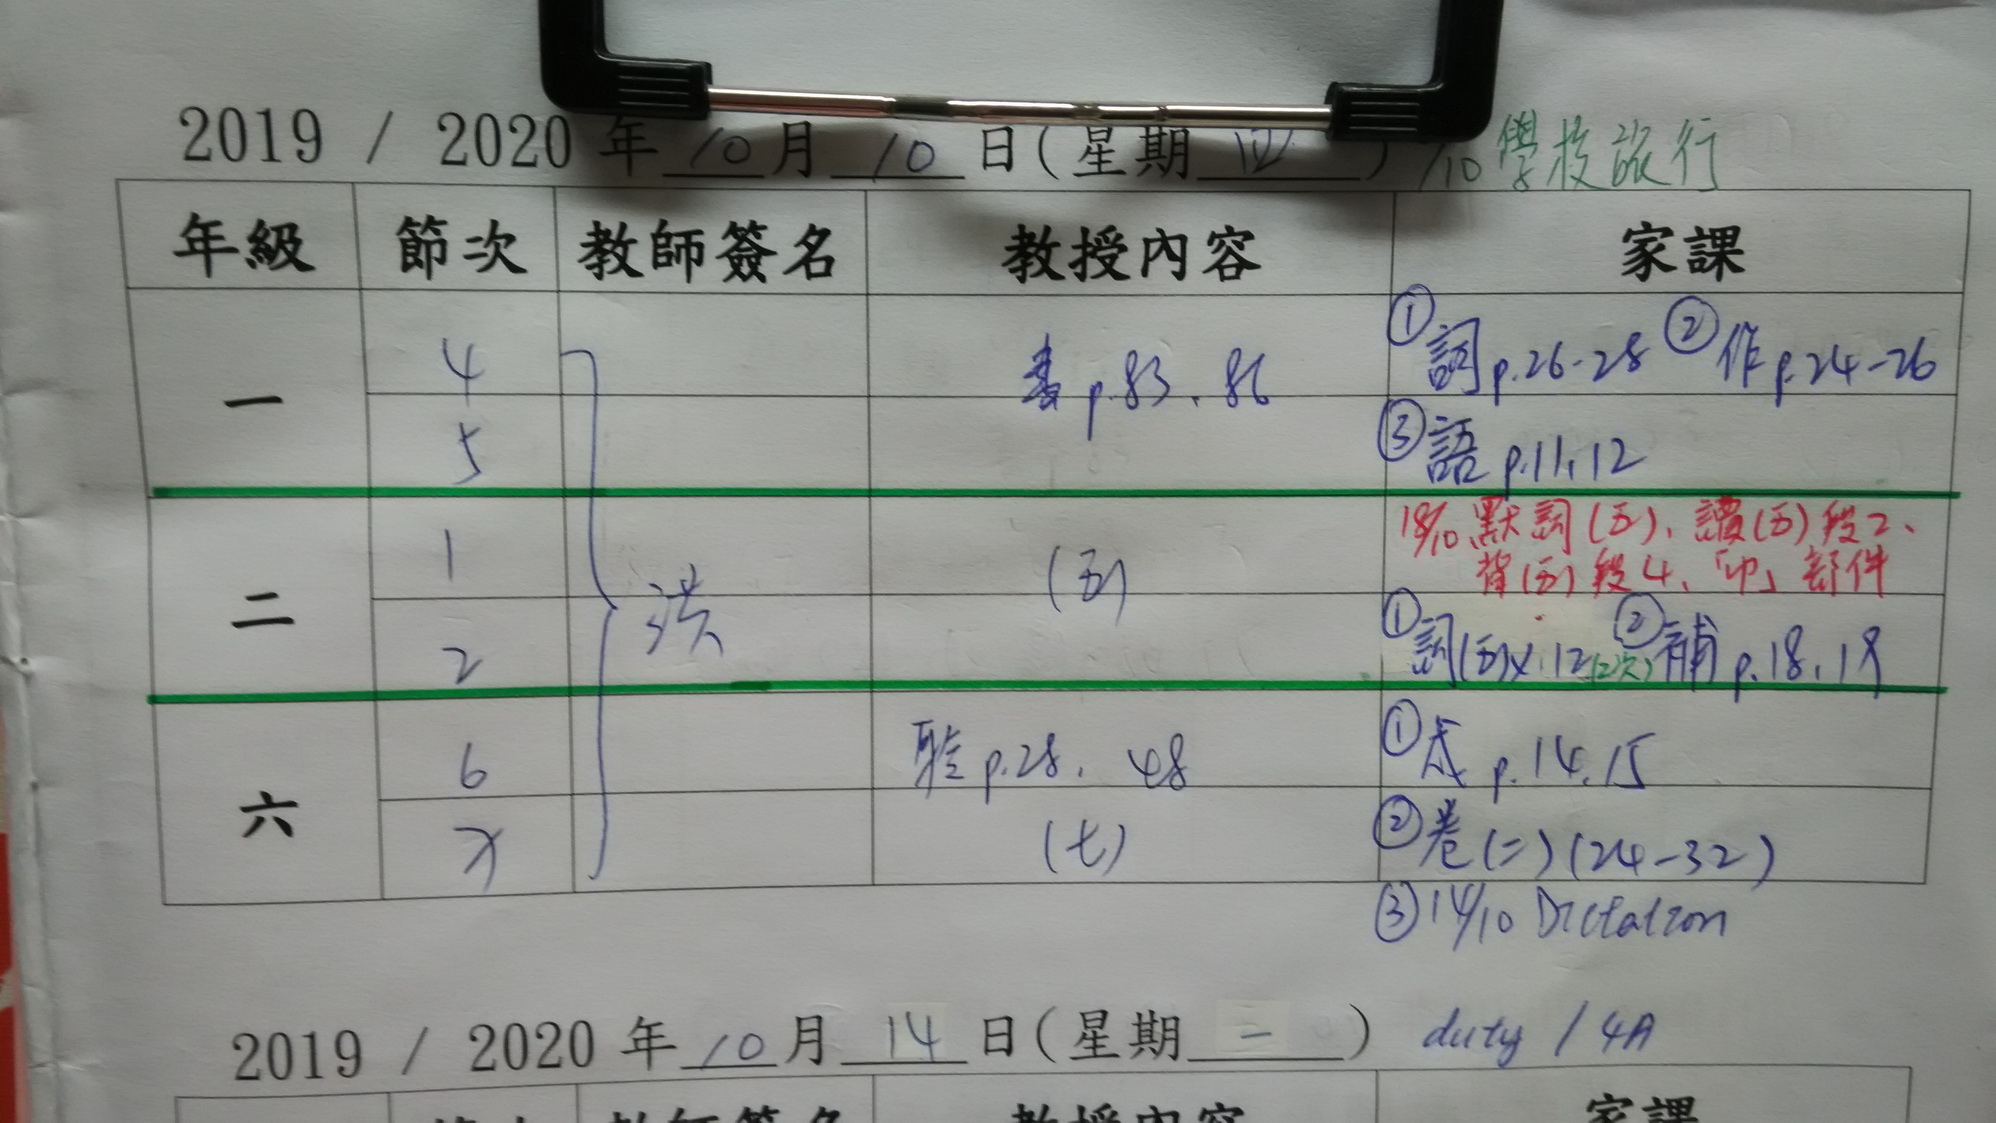 2019 / 2020 年 10 月 10 日(星期 四 ) /10 學校旅行
年級 節次 教師簽名 教授內容 家課
一 4 書 p.83、86 ①詞 p.26-28 ②作 p.24-26
5 ③語 p.11,12
二 1 (五) 18/10 默詞(五)、讀(五)段2、
背(五)段4、「卬」部件
2 洪 ①詞(五)x.12(2次) ②補 p.18,19
六 6 p.28、48 ① p.14,15
7 (七) ②卷(二)(24-32)
③14/10 Dictation
2019 / 2020 年 10 月 14 日(星期 一 ) duty / 4A
教師簽名 教授內容 家課